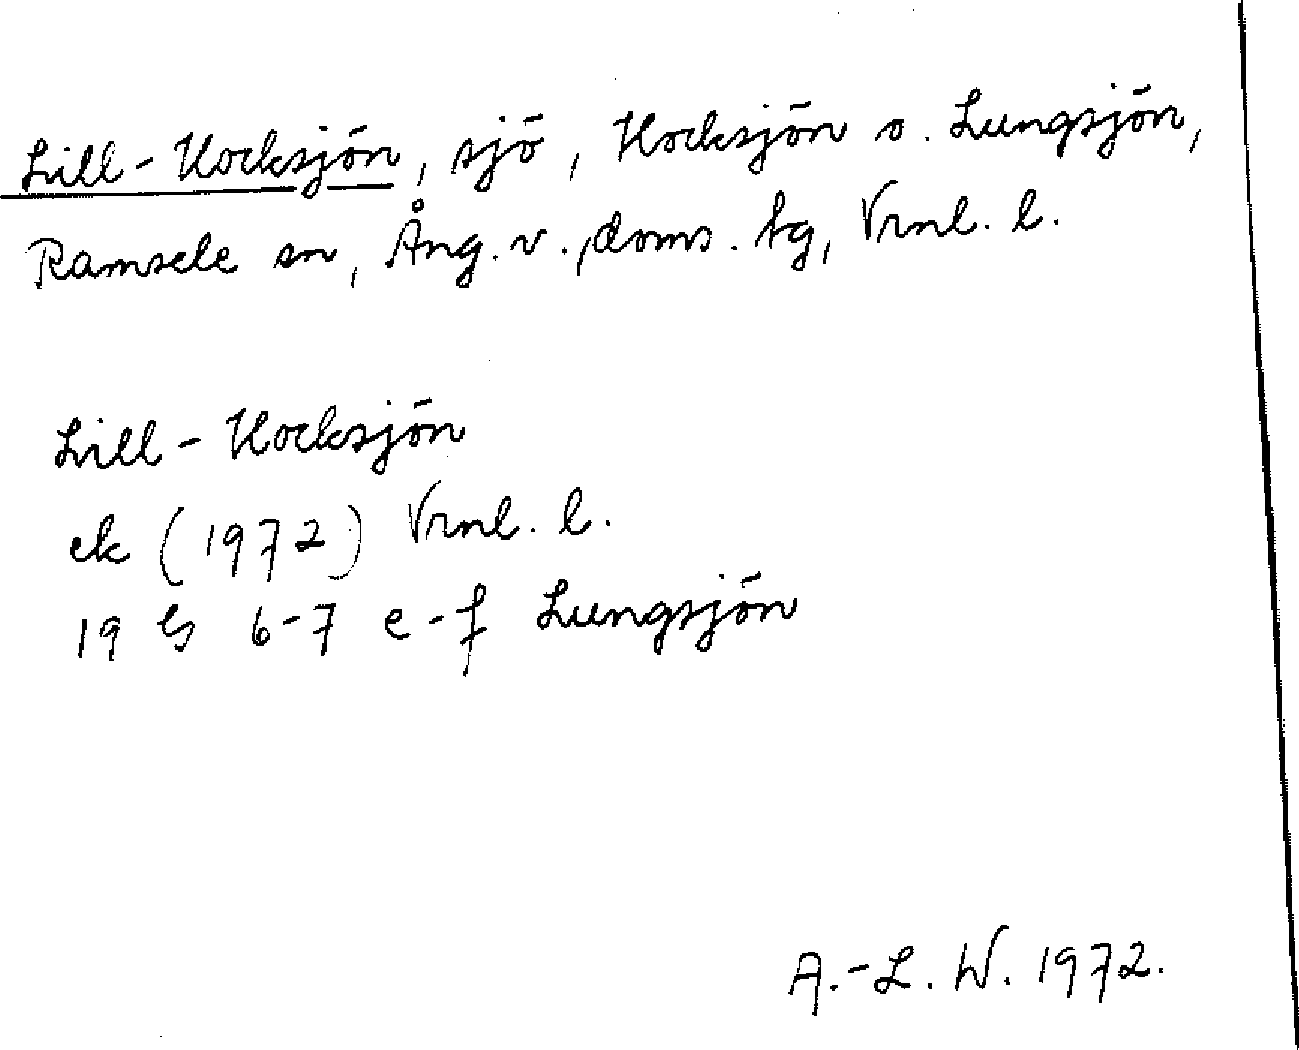 Lill-Hocksjön, sjö, Hocksjön o. Lungsjön,
Ramsele sn, Ång. v., doms. tg, Vrnl. l.
Lill-Hocksjön
ek (1972) Vrnl. l.
19 G 6-7 e-f Lungsjön
A.-L. W. 1972.